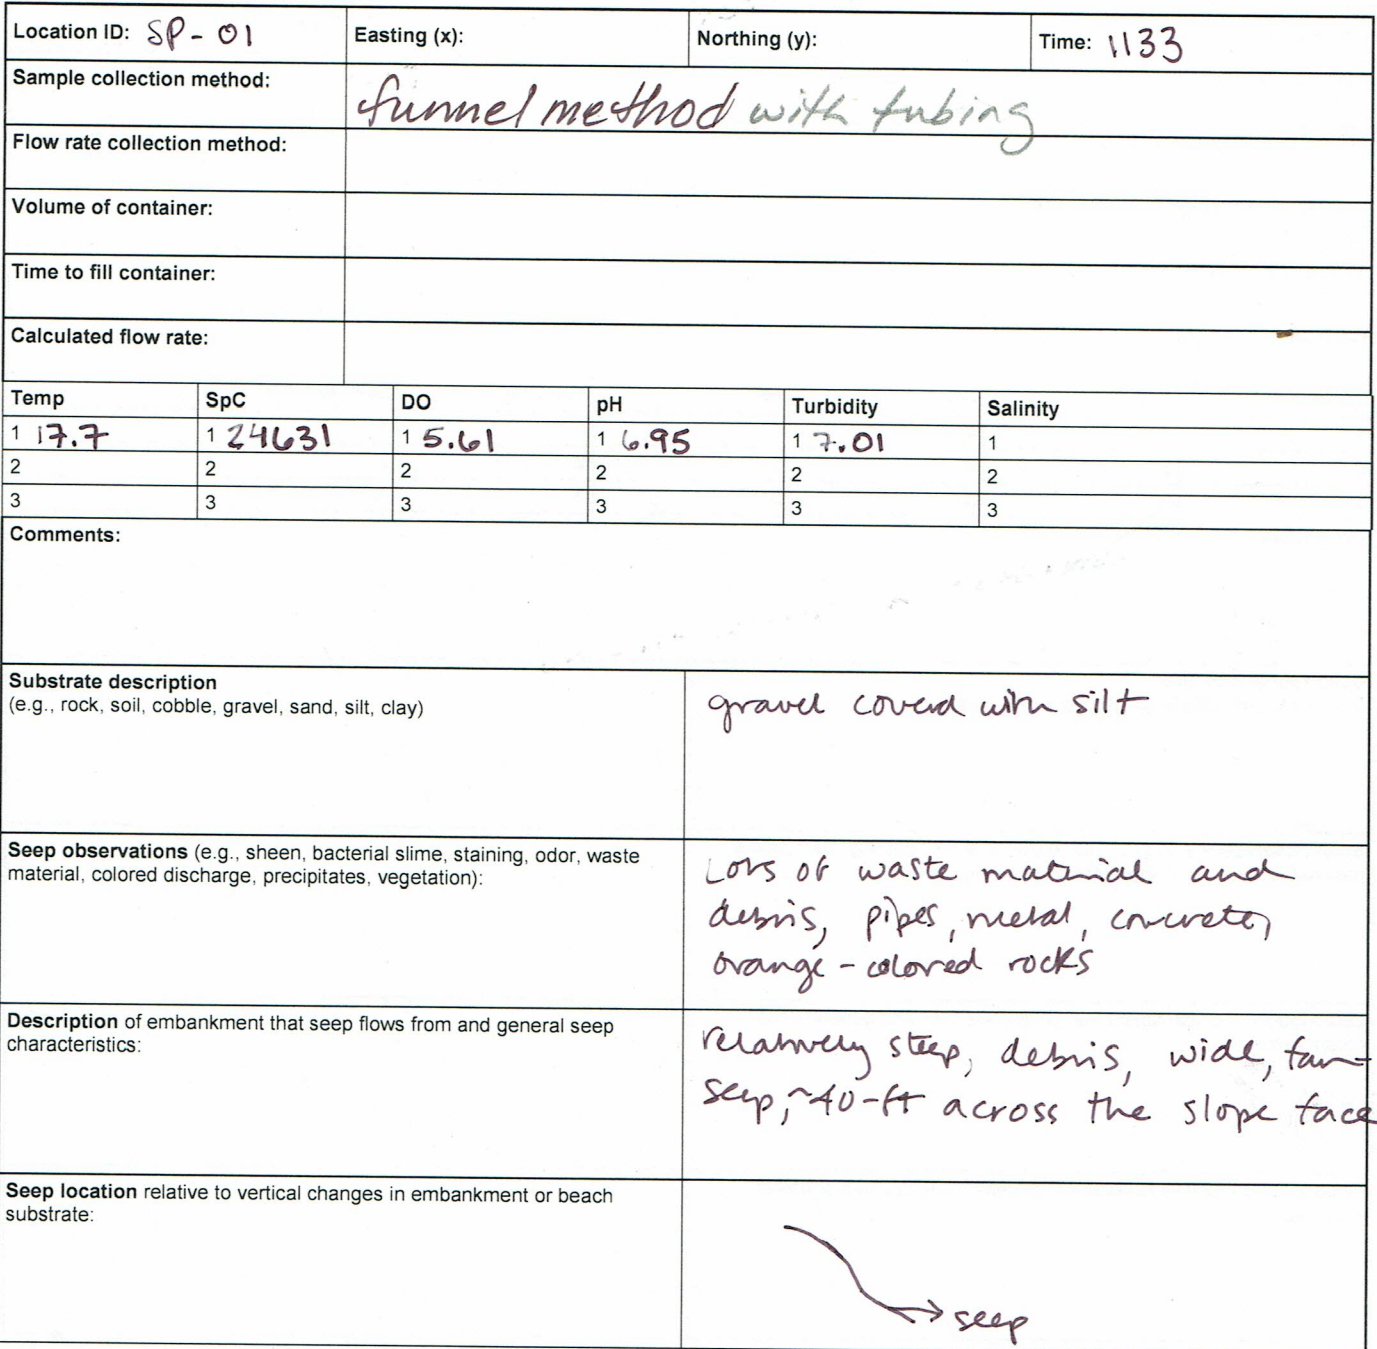 Location ID: SP-01 Easting (x): Northing (y): Time: 1133
Sample collection method: funnel method with tubing
Flow rate collection method:
Volume of container:
Time to fill container:
Calculated flow rate:
Temp SpC DO pH Turbidity Salinity
1 17.7 1 24631 1 5.61 1 6.95 1 7.01 1
2 2 2 2 2 2
3 3 3 3 3 3
Comments:
Substrate description
(e.g., rock, soil, cobble, gravel, sand, silt, clay)
gravel coverd with silt
Seep observations (e.g., sheen, bacterial slime, staining, odor, waste
material, colored discharge, precipitates, vegetation):
Lots of waste material and
debris, pipes, metal, concrete,
orange-colored rocks
Description of embankment that seep flows from and general seep
characteristics:
relatively steep, debris, wide,
seep, ~40-ft across the slope face
Seep location relative to vertical changes in embankment or beach
substrate:
seep